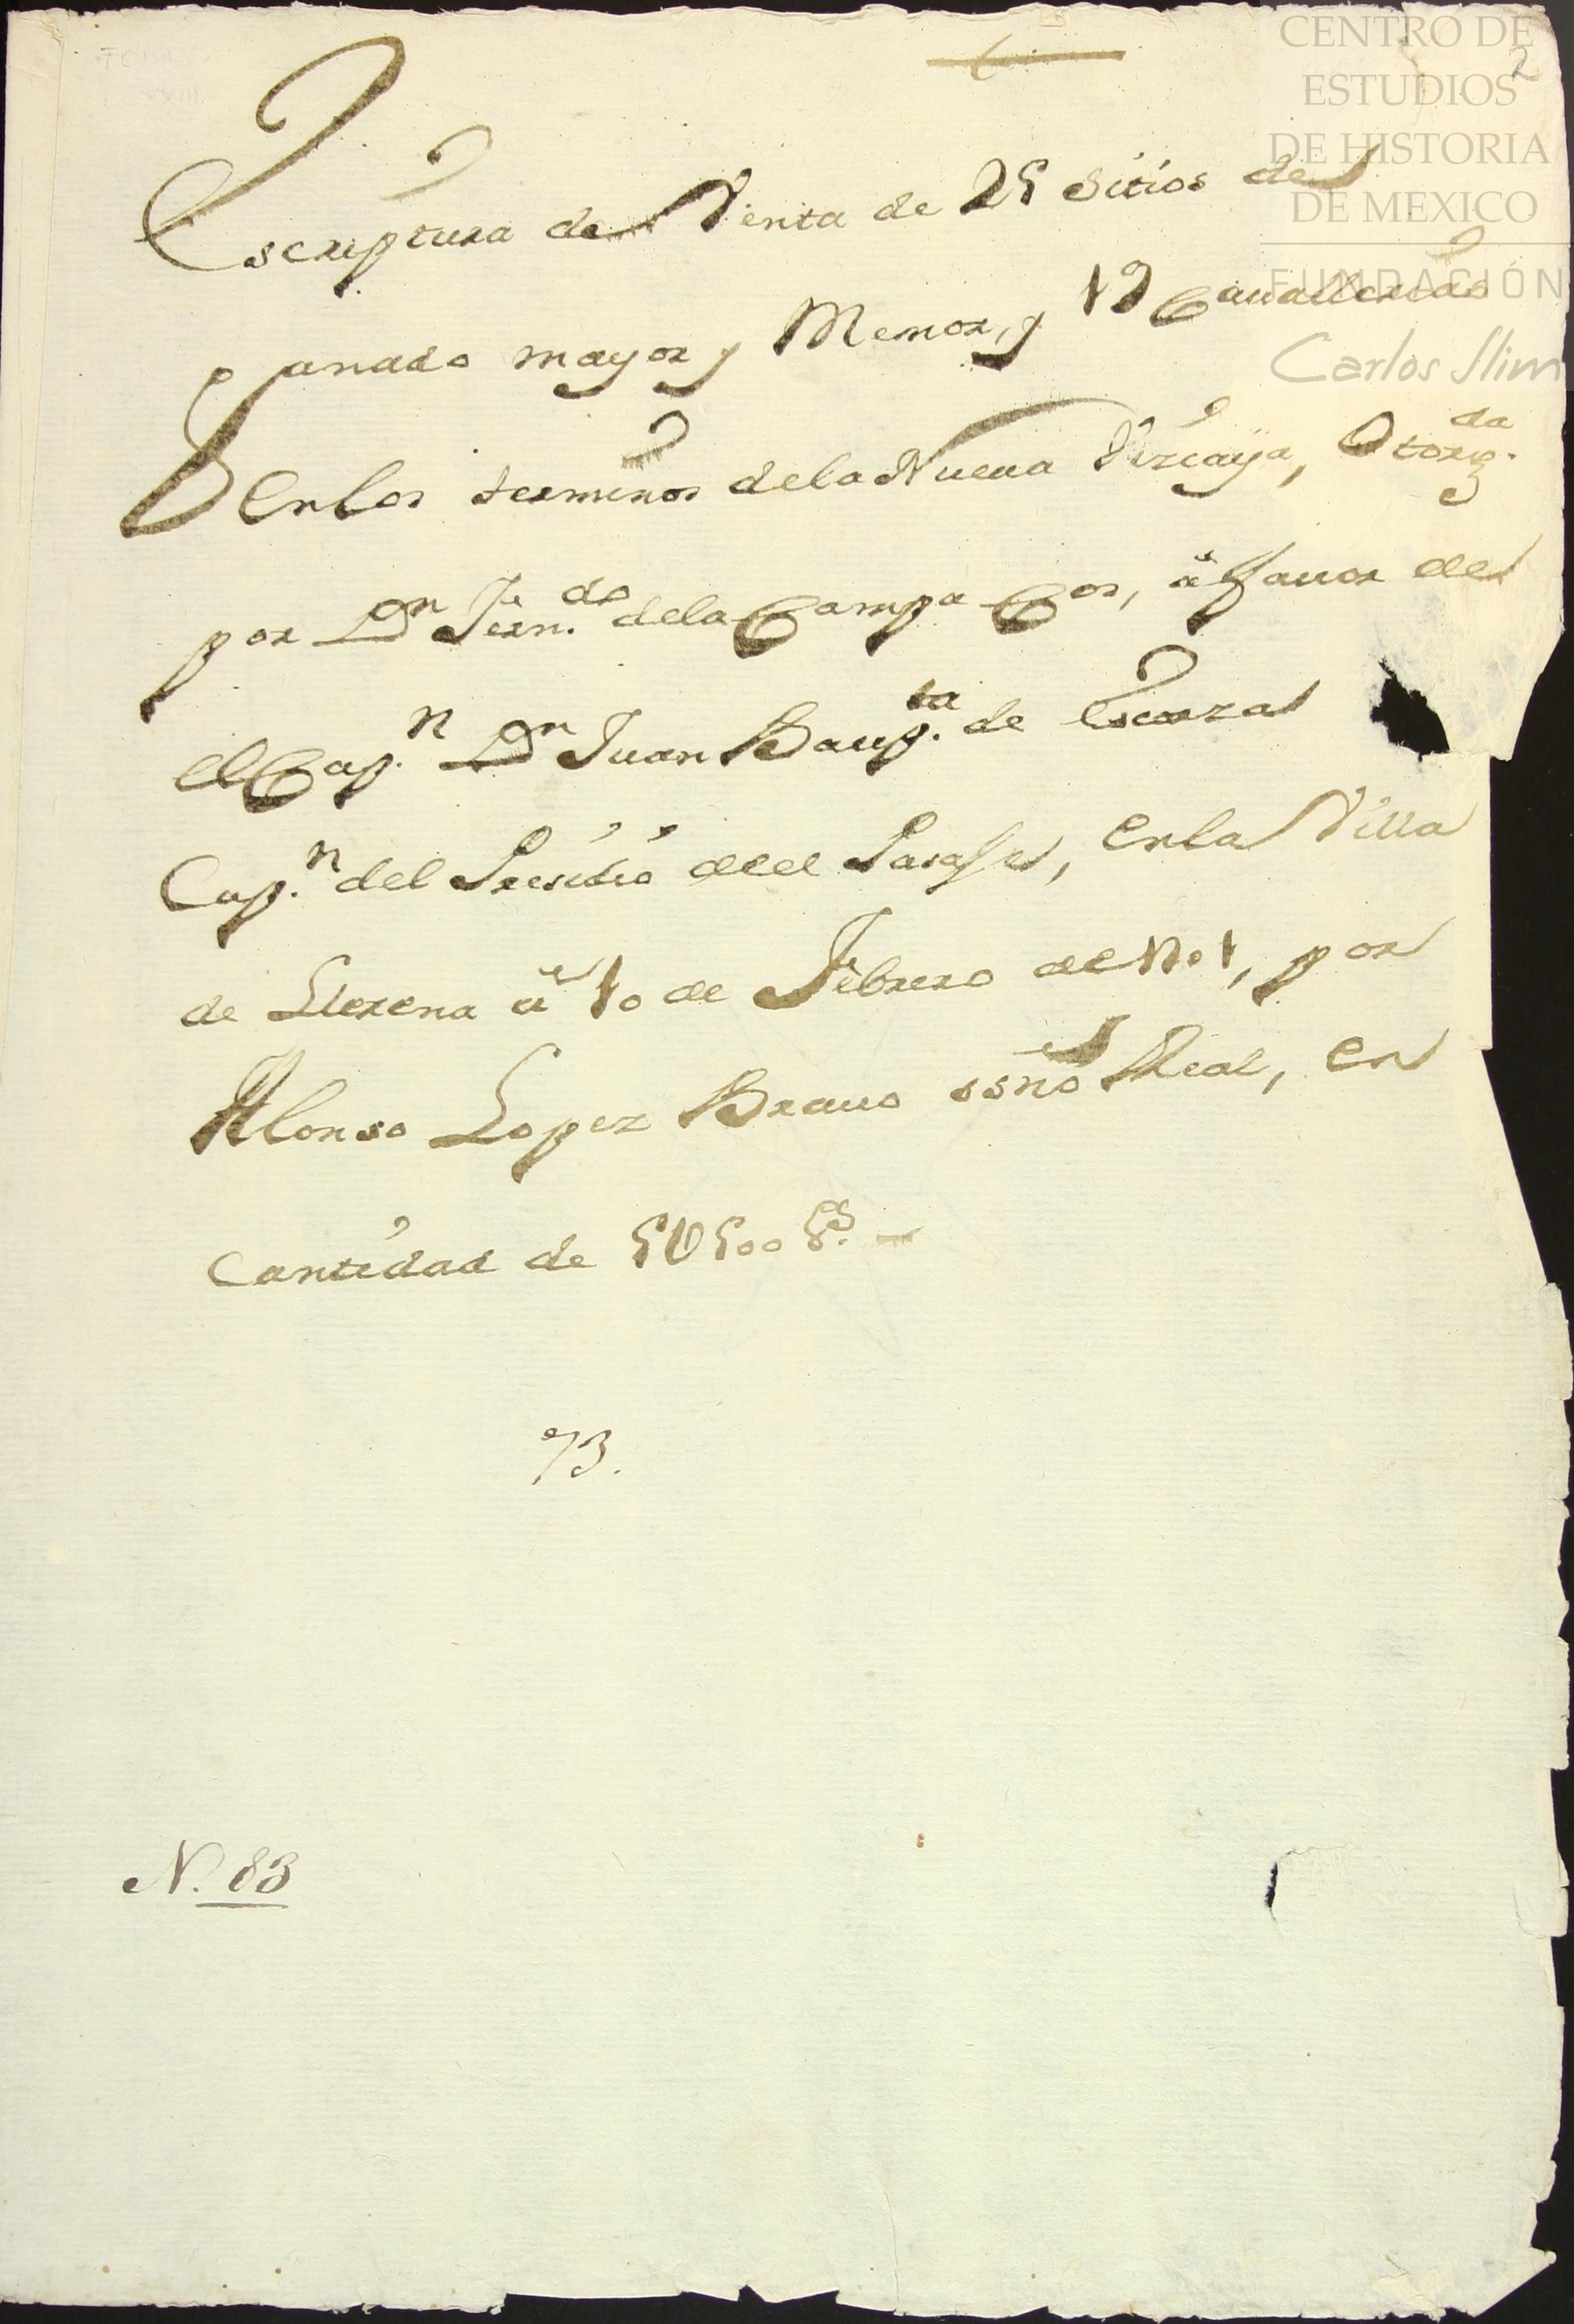 2
CENTRO DE
ESTUDIOS
DE HISTORIA
DE MEXICO
FUNDACIÓN
Carlos Slim
Escriptura de Venta de 25 Sitios de
ganado mayor y Menor, y 17 Cauallerias
En los terminos dela Nueua Vizcaya, Otorg.da
por Dn Fern.do dela Campa Cos, â fauor de
el Cap.n Dn Juan Baup.ta de Escorza
Cap.n del Presidio de el Pasaje, en la Villa
de Llerena â 10 de Febrero de 1701, por
Alonso Lopez Brauo ssno Real, en
Cantidad de 5U500 ps.
73.
N. 83